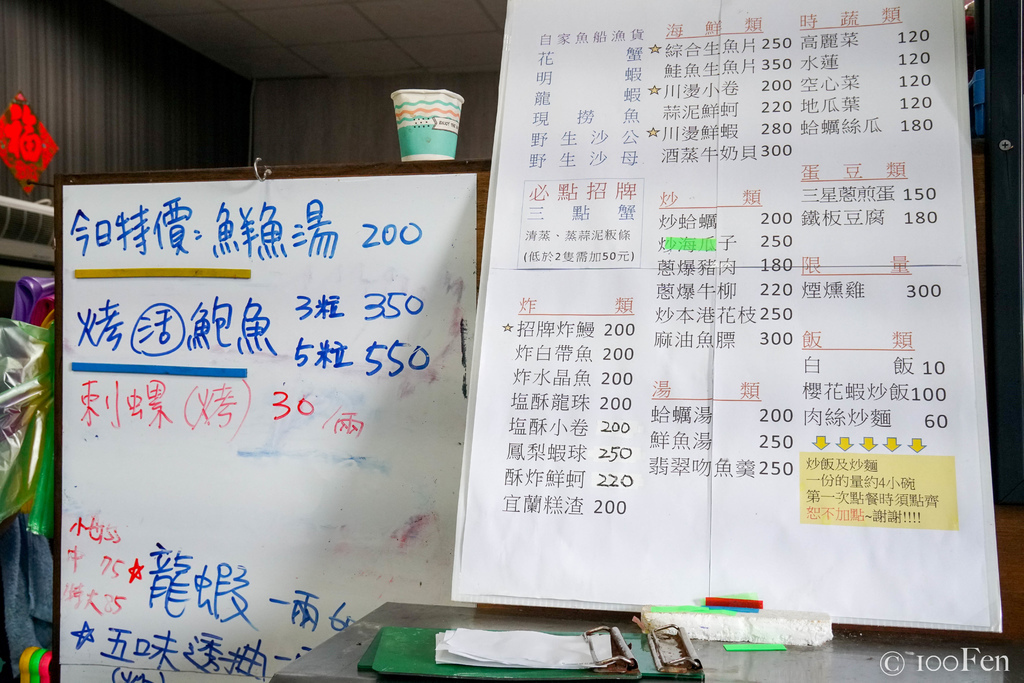 福
今日特價：鮮魚湯 200
烤活鮑魚 3粒 350
5粒 550
刺螺(烤) 30/兩
75
特大 85
☆龍蝦 一兩
☆五味透抽
自家魚船漁貨
花蟹
明蝦
龍蝦
現撈魚
野生沙公
野生沙母
必點招牌
三點蟹
清蒸、蒜泥粄條
(低於2隻需加50元)
炸類
☆招牌炸鰻 200
炸白帶魚 200
炸水晶魚 200
塩酥龍珠 200
塩酥小卷 200
鳳梨蝦球 250
酥炸鮮蚵 220
宜蘭糕渣 200
海鮮類
☆綜合生魚片 250
鮭魚生魚片 350
☆川燙小卷 200
蒜泥鮮蚵 220
☆川燙鮮蝦 280
酒蒸牛奶貝 300
炒類
炒蛤蠣 200
炒海瓜子 250
蔥爆豬肉 180
蔥爆牛柳 220
炒本港花枝 250
麻油魚膘 300
湯類
蛤蠣湯 200
鮮魚湯 250
翡翠吻魚羹 250
時蔬類
高麗菜 120
水蓮 120
空心菜 120
地瓜葉 120
蛤蠣絲瓜 180
蛋豆類
三星蔥煎蛋 150
鐵板豆腐 180
限量
煙燻雞 300
飯類
白飯 10
櫻花蝦炒飯 100
肉絲炒麵 60
炒飯及炒麵
一份的量約4小碗
第一次點餐時須點齊
恕不加點~謝謝!!!!
© 100Fen